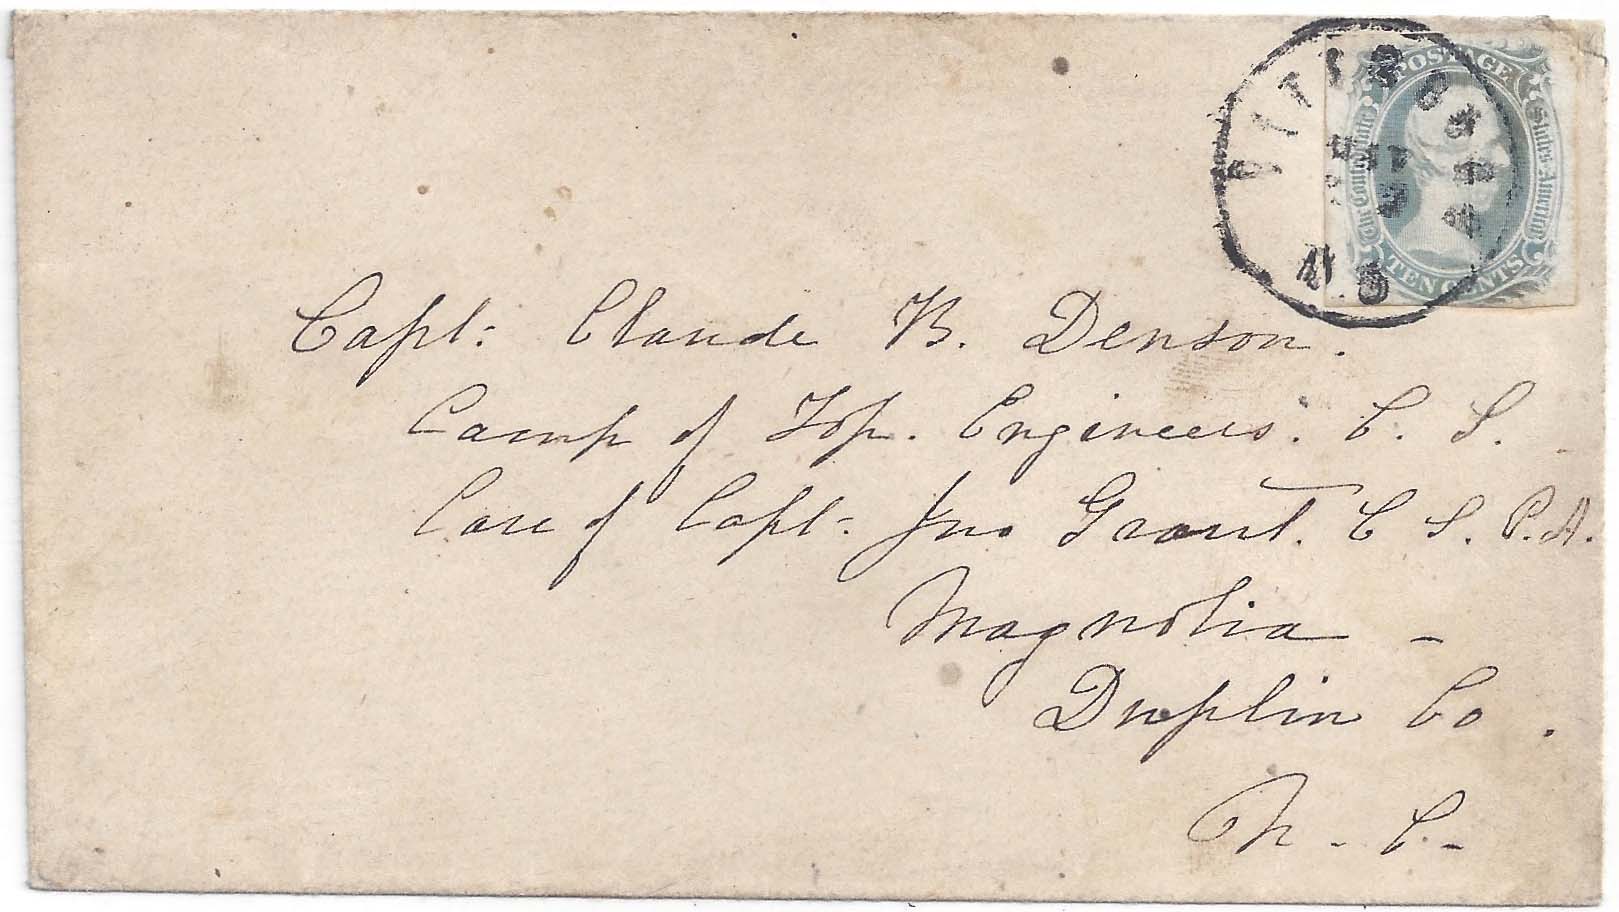 PITTSBORO
N.C
POSTAGE
The Confederate States America
TEN CENTS
Capt: Claude B. Denson.
Camp of Top. Engineers. C. S.
Care of Capt. Jno Grant. C S. P. A.
Magnolia -
Duplin Co.
N. C.